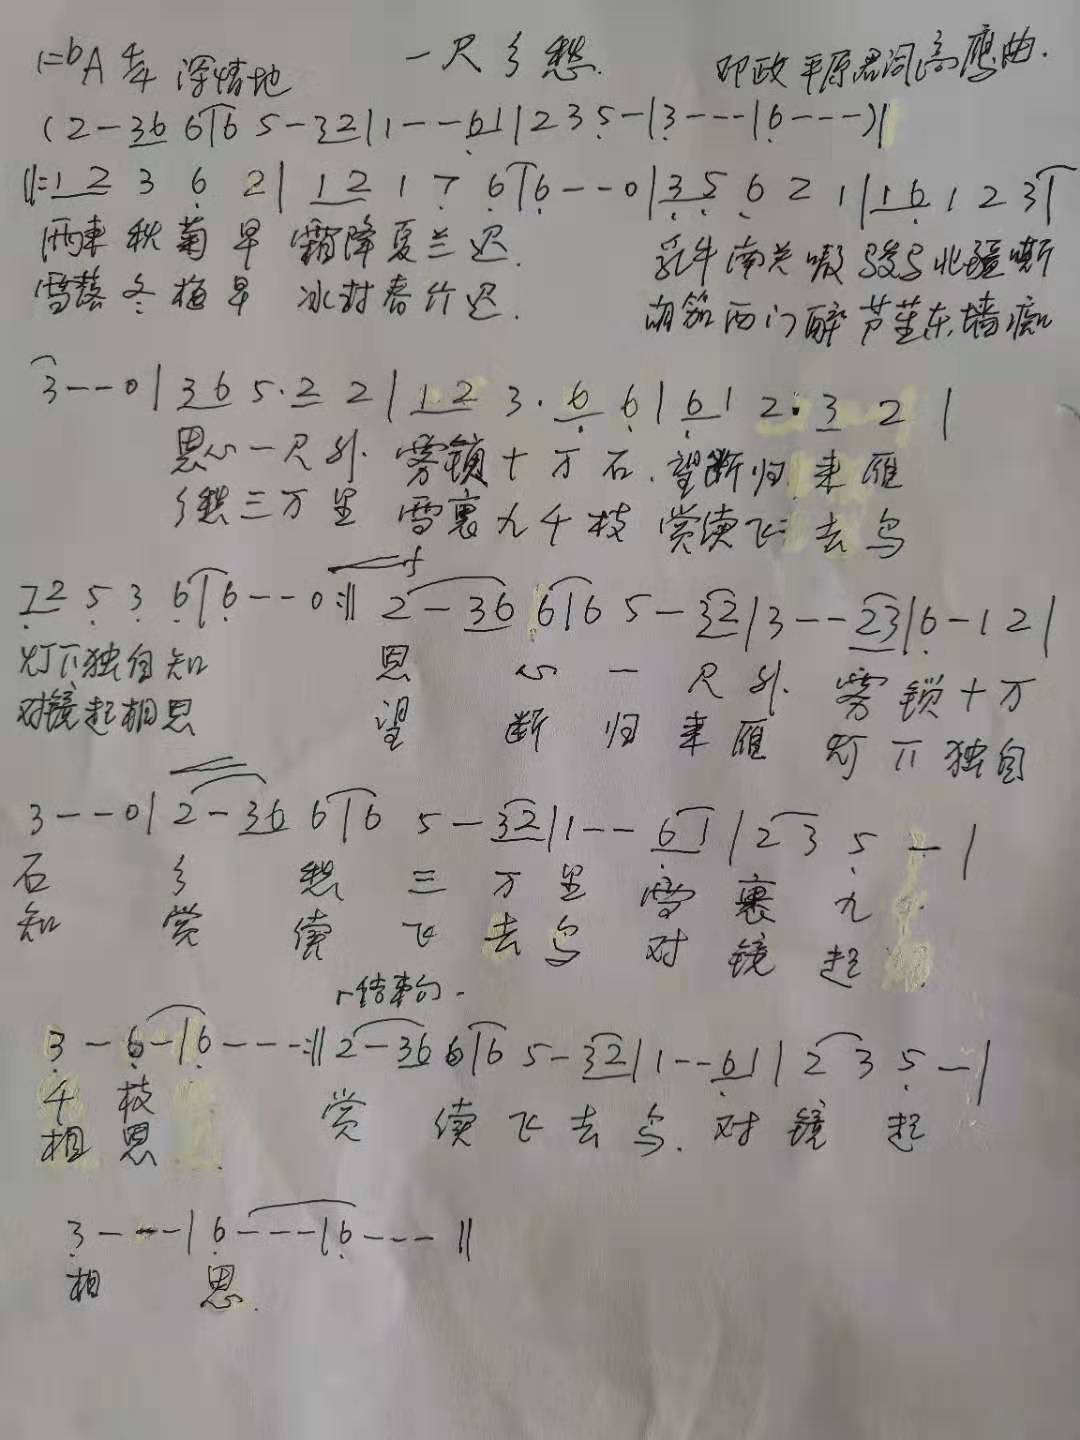 1=bA 4/4 深情地 一尺乡愁 邓政平原君词 高鹰曲.
(2-36 6|6 5-32|1---61|2 3 5-|3---|6---)|
||:12 3 6 2| 12 1 7 6|6--0|35 6 2 1|16 1 2 3|
雨来秋菊早 霜降夏兰迟. 乳牛南关嗷 骏马北疆嘶
雪落冬梅早 冰封春竹迟. 胡笳西门醉 芦笙东墙痴
3--0|36 5·2 2|12 3·6 6|61 2·3 2|
思心一尺外. 雾锁十万石. 望断归来雁
乡愁三万里 雪裹九千枝 赏续飞去鸟
72 5 3 6|6--0:|| f 2-36 6|6 5-32|3--23|6-12|
灯下独自知 思心一尺外. 雾锁十万
对镜起相思 望断归来雁 灯下独自
3--0|2-36 6|6 5-32|1--61|2 3 5-|
石 乡愁三万里 雪裹九
知 赏续飞去鸟 对镜起
结束句-
3-6-|6---:||2-36 6|6 5-32|1--61|2 3 5-|
千枝 赏续飞去鸟. 对镜起
相思
3---|6---|6---||
相思.